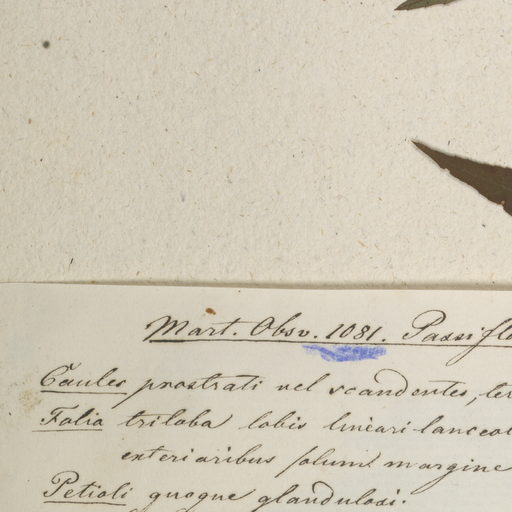 Mart. Obsv. 1081. Passiflo
Caules prostrati vel scandentes, ter
Folia triloba lobis lineari lanceol
exterioribus solum margine
Petioli quoque glandulosi.